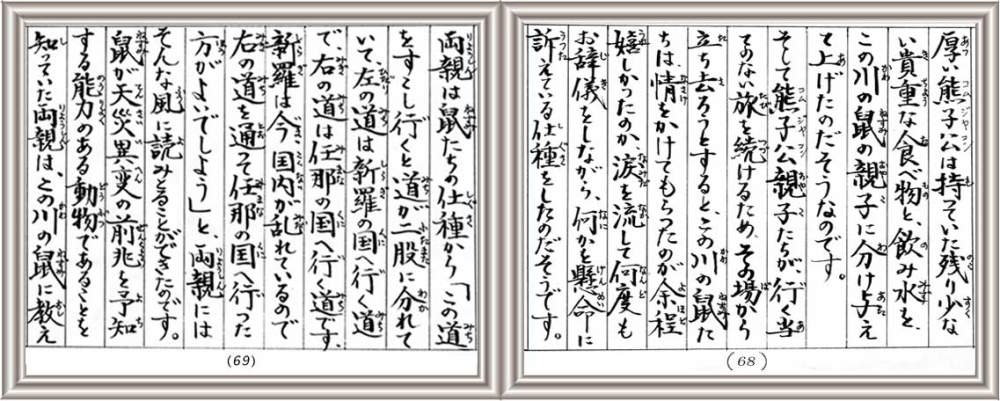 厚い熊子公は持っていた残り少な
い貴重な食べ物と、飲み水を、
この川の鼠の親子に分け与え
て上げたのだそうなのです。
そして熊子公親子たちが、行く当
てのない旅を続けるため、その場から
立ち去ろうとすると、この川の鼠た
ちは、情をかけてもらったのが余程
嬉しかったのか、涙を流して何度も
お辞儀をしながら、何かを懸命に
訴えている仕種をしたのだそうです。
(68)
両親は鼠たちの仕種から「この道
をすこし行くと道が二股に分れて
いて、左の道は新羅の国へ行く道
で、右の道は任那の国へ行く道です、
新羅は今、国内が乱れているので
右の道を通って任那の国へ行った
方がよいでしよう」と、両親には
そんな風に読みとることができたのです。
鼠が天災異変の前兆を予知
する能力のある動物であることを
知っていた両親は、この川の鼠に教え
(69)